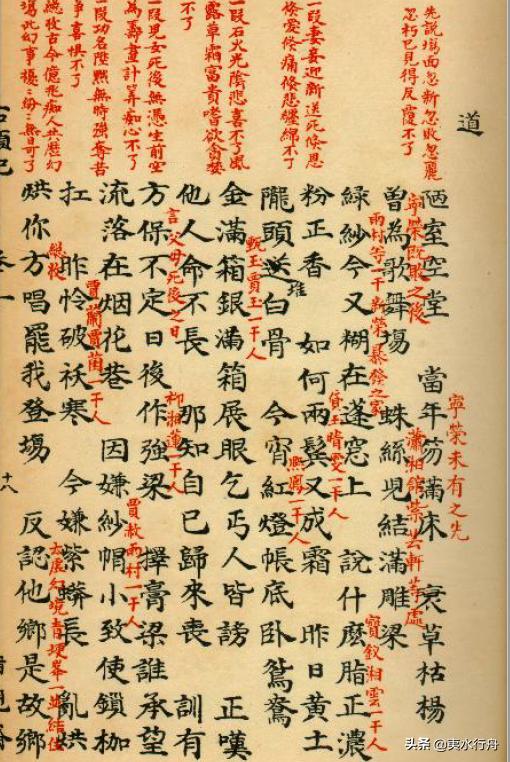 道
先說塲面忽新忽敗忽麗
忽朽已見得反覆不了
一段妻妾迎新送死倏恩
倏愛倏痛倏悲纏綿不了
一段石火光陰悲喜不了風
露草霜富貴嗜欲貪婪
不了
一段兒女死後無憑生前空
為籌畫計算痴心不了
一段功名陞黜無時強奪苦
爭喜懼不了
總收古今億兆痴人共歷幻
塲此幻事擾擾紛紛無日可了
陋室空堂 當年笏滿床 衰草枯楊
寧榮未有之先
寧榮既敗之後
曾為歌舞塲 蛛絲兒結滿雕梁
瀟湘舘紫芸軒等處
雨村等一干新榮暴發之家
綠紗今又糊在蓬窓上 說什麽脂正濃
寶釵湘雲一干人
粉正香 如何兩鬢又成霜 昨日黃土
貸玉晴雯一干人
隴頭送白骨 今宵紅燈帳底卧鴛鴦
堆
熙鳳一干人
金滿箱銀滿箱展眼乞丐人皆謗 正嘆
甄玉賈玉一干人
他人命不長 那知自己歸來喪 訓有
方保不定日後作強梁 擇膏梁誰承望
言父母死後之日
柳湘蓮一干人
流落在烟花巷 因嫌紗帽小致使鎖枷
賈赦雨村一干人
扛 昨怜破袄寒 今嫌紫蟒長 亂烘
賈蘭賈菌一干人
烘你方唱罷我登塲 反認他鄉是故鄉
總收
太虛幻境青埂峯一並結住
卷一
十八
头条 @東水行舟